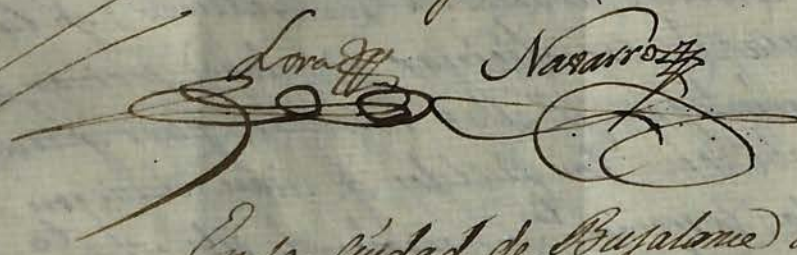 Lora Navarro
En la Ciudad de Bujalance